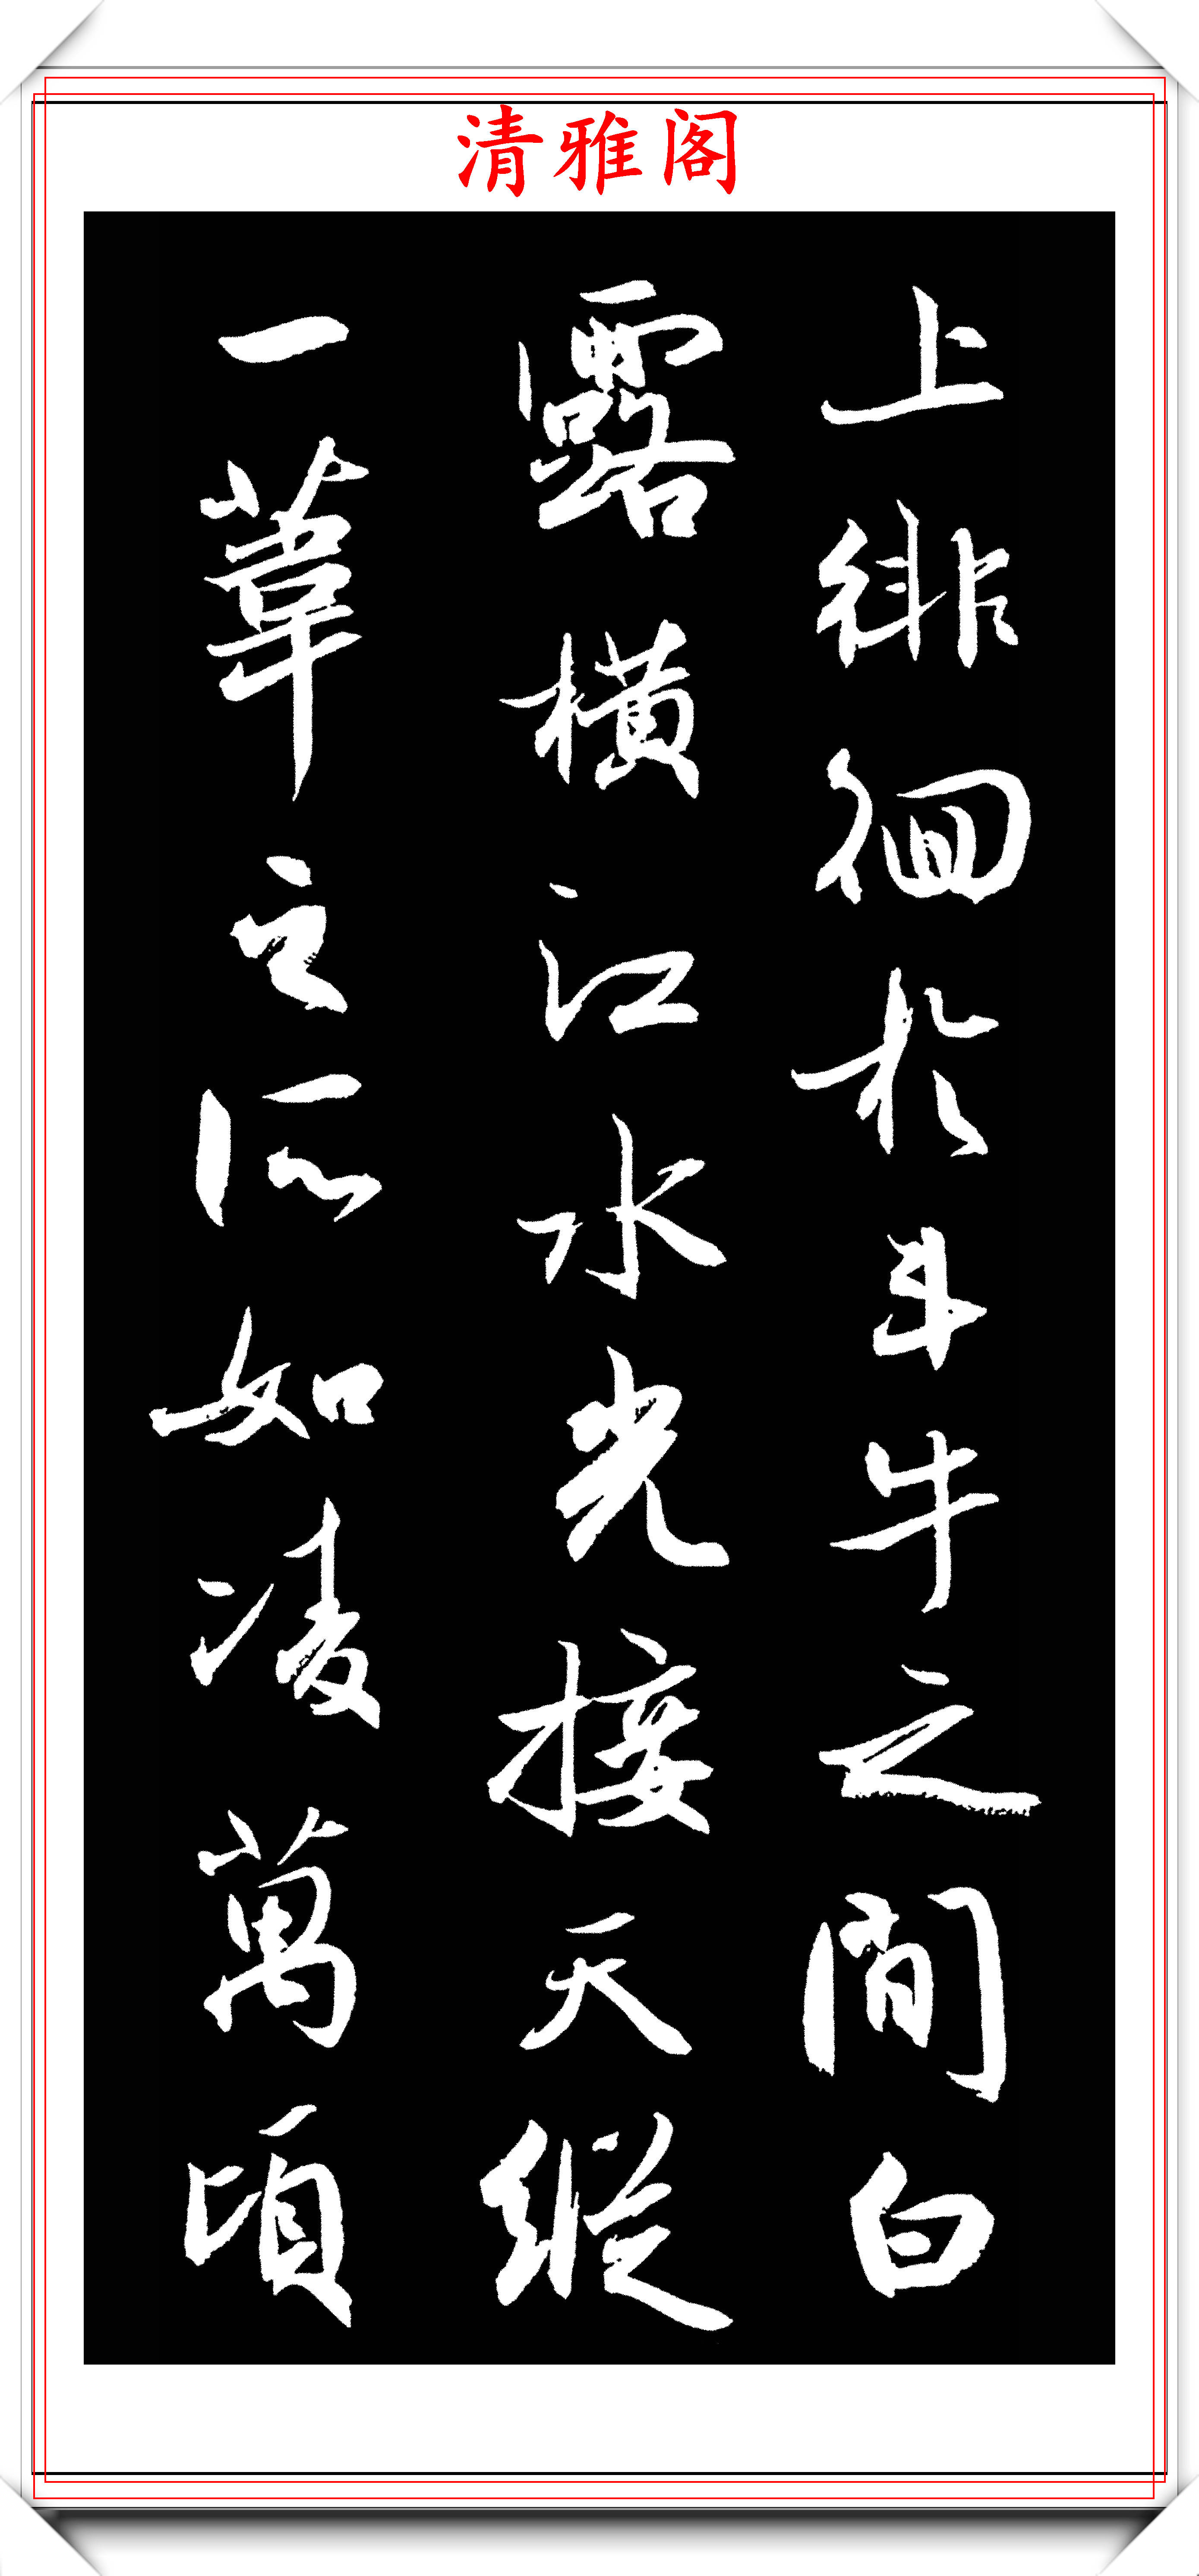 清雅阁
上徘徊於斗牛之間白
露横江水光接天縱
一葦之所如凌萬頃